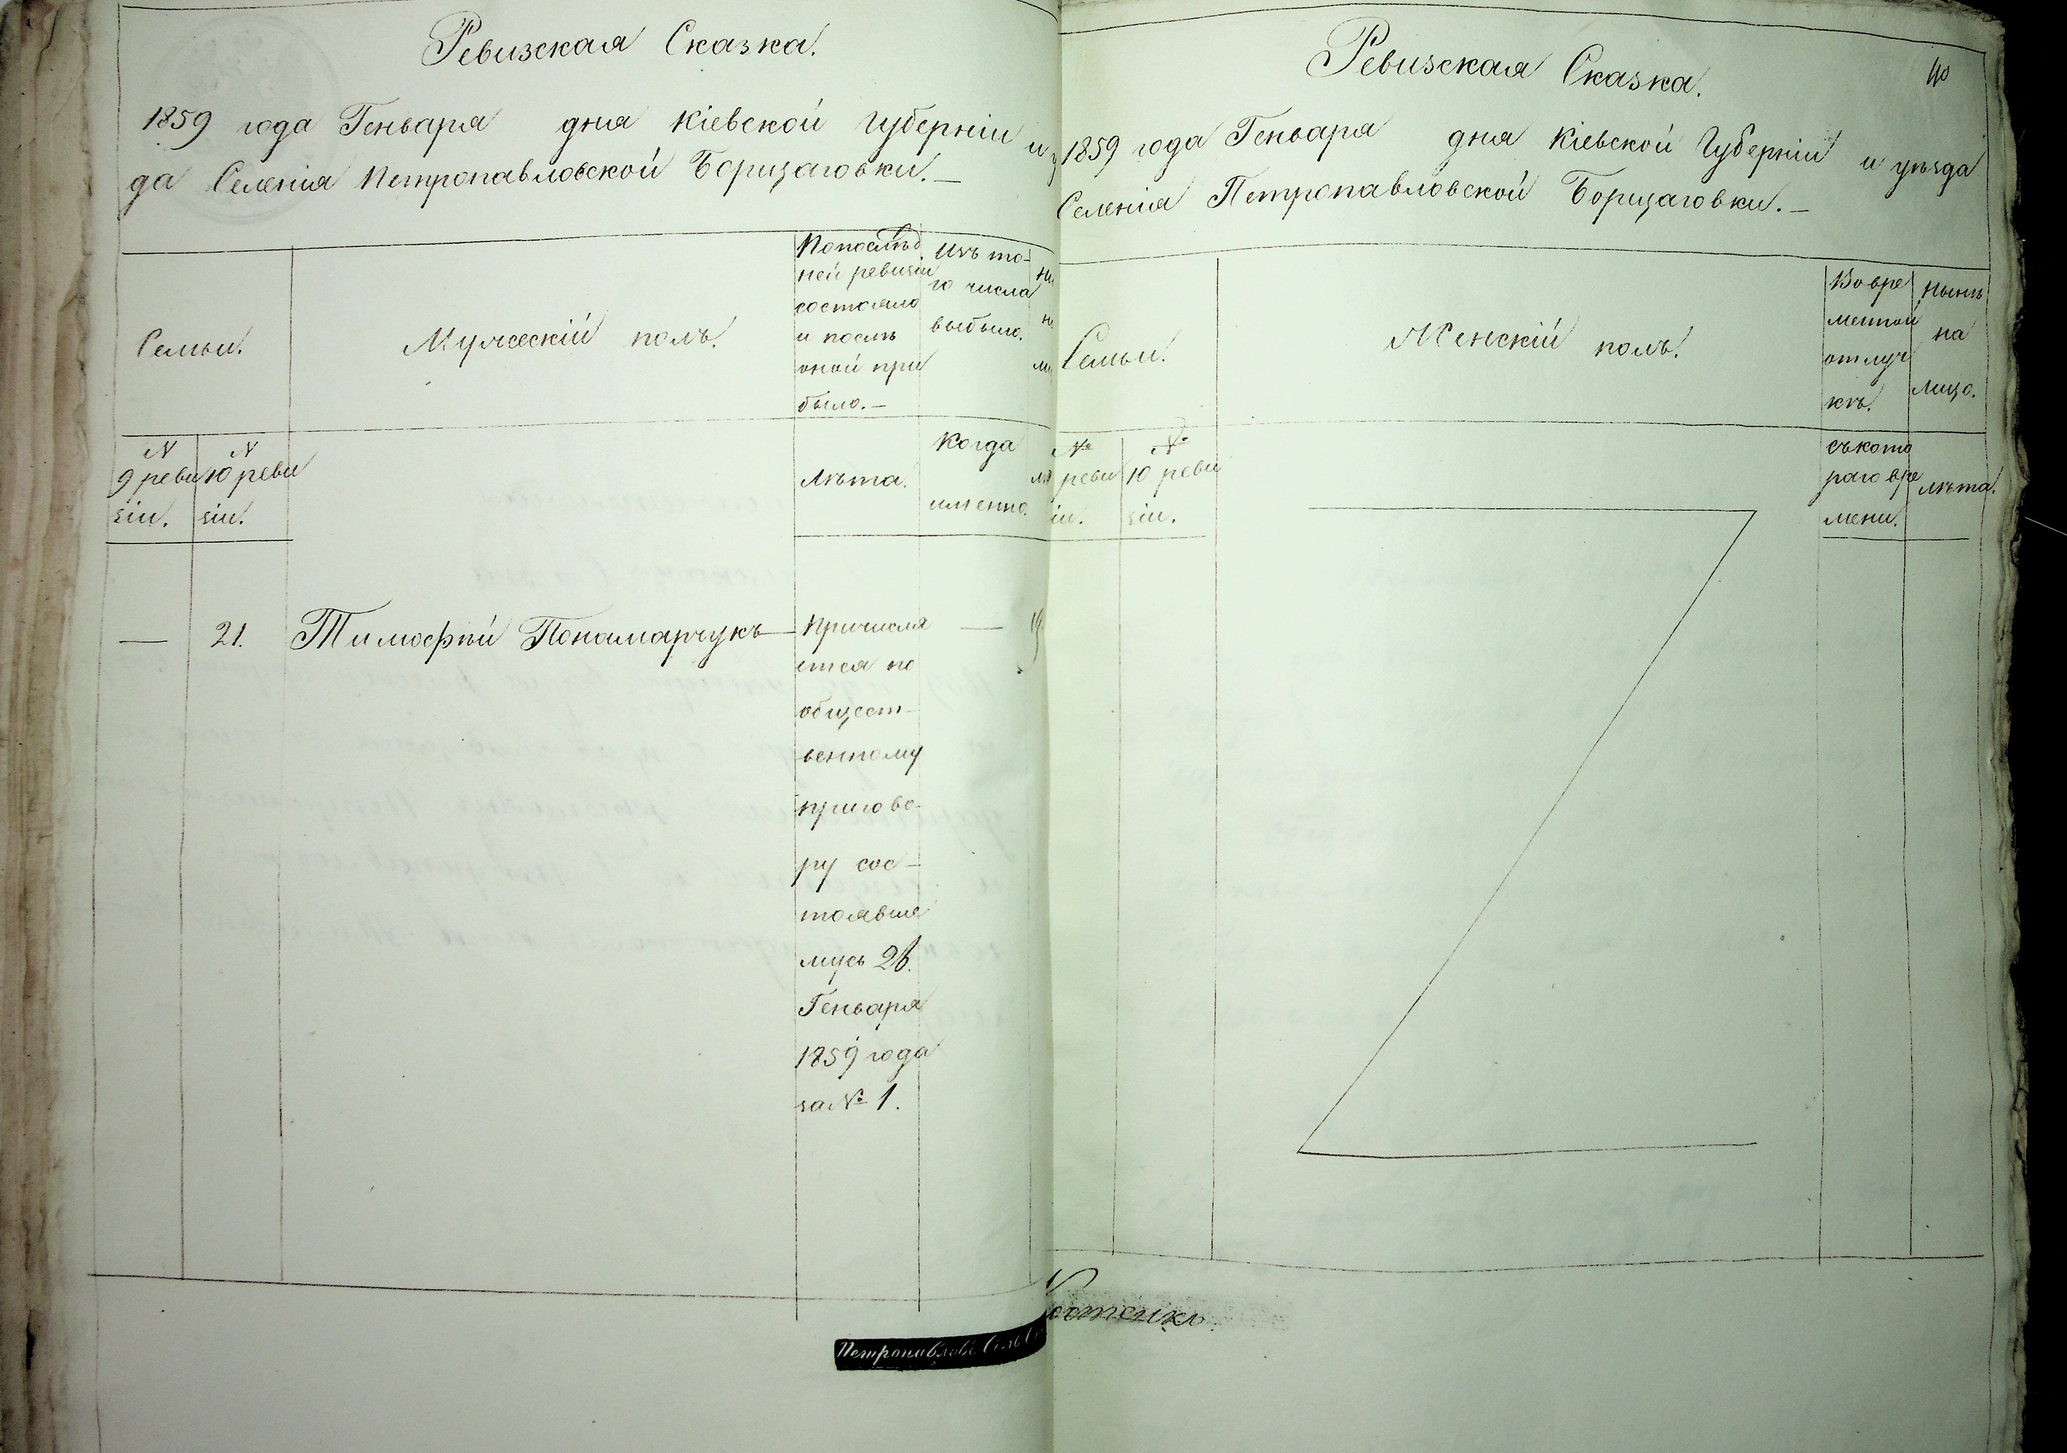 Ревизская Сказка.
1859 года Генваря дня Кіевской Губерніи и
да Селенія Петропавловской Борщаговки.—
Семьи.
Мужескій полъ.
По послѣд
ней ревизіи
состояло
и послѣ
оной при
было.—
Изъ то-
го числа
выбыло.
N
9 реви
зіи.
N
10 реви
зіи.
Лѣта.
Когда
именно.
— 21. Тимофѣй Понамарчукъ — Причисля —
ется по
общест-
венному
пригово-
ру сос-
тоявше
муся 26.
Генваря
1859 года
за № 1.
Петропавлов. Сель
Ревизская Сказка.
40
1859 года Генваря дня Кіевской Губерніи и уѣзда
Селенія Петропавловской Борщаговки.—
Семьи.
Женскій полъ.
Во вре
менной
отлуч
кѣ.
Нынѣ
на
лицо.
№
реви
іи.
№
10 реви
зіи.
съ кото
раго вре
мени.
лѣта.